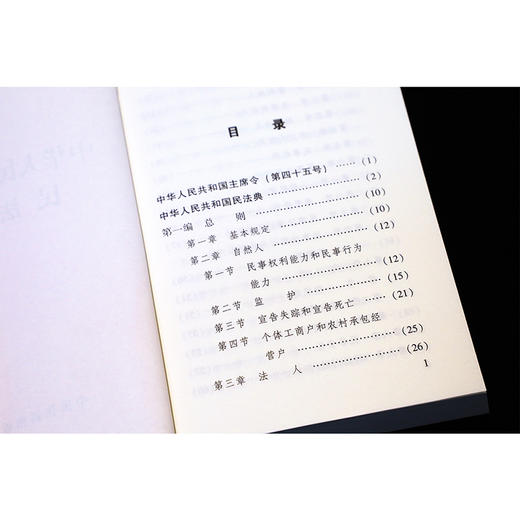 目 录
中华人民共和国主席令(第四十五号) …… (1)
中华人民共和国民法典 …… (2)
第一编 总 则 …… (10)
第一章 基本规定 …… (10)
第二章 自然人 …… (12)
第一节 民事权利能力和民事行为
能力 …… (12)
第二节 监 护 …… (15)
第三节 宣告失踪和宣告死亡 …… (21)
第四节 个体工商户和农村承包经
营户 …… (25)
第三章 法 人 …… (26)
1